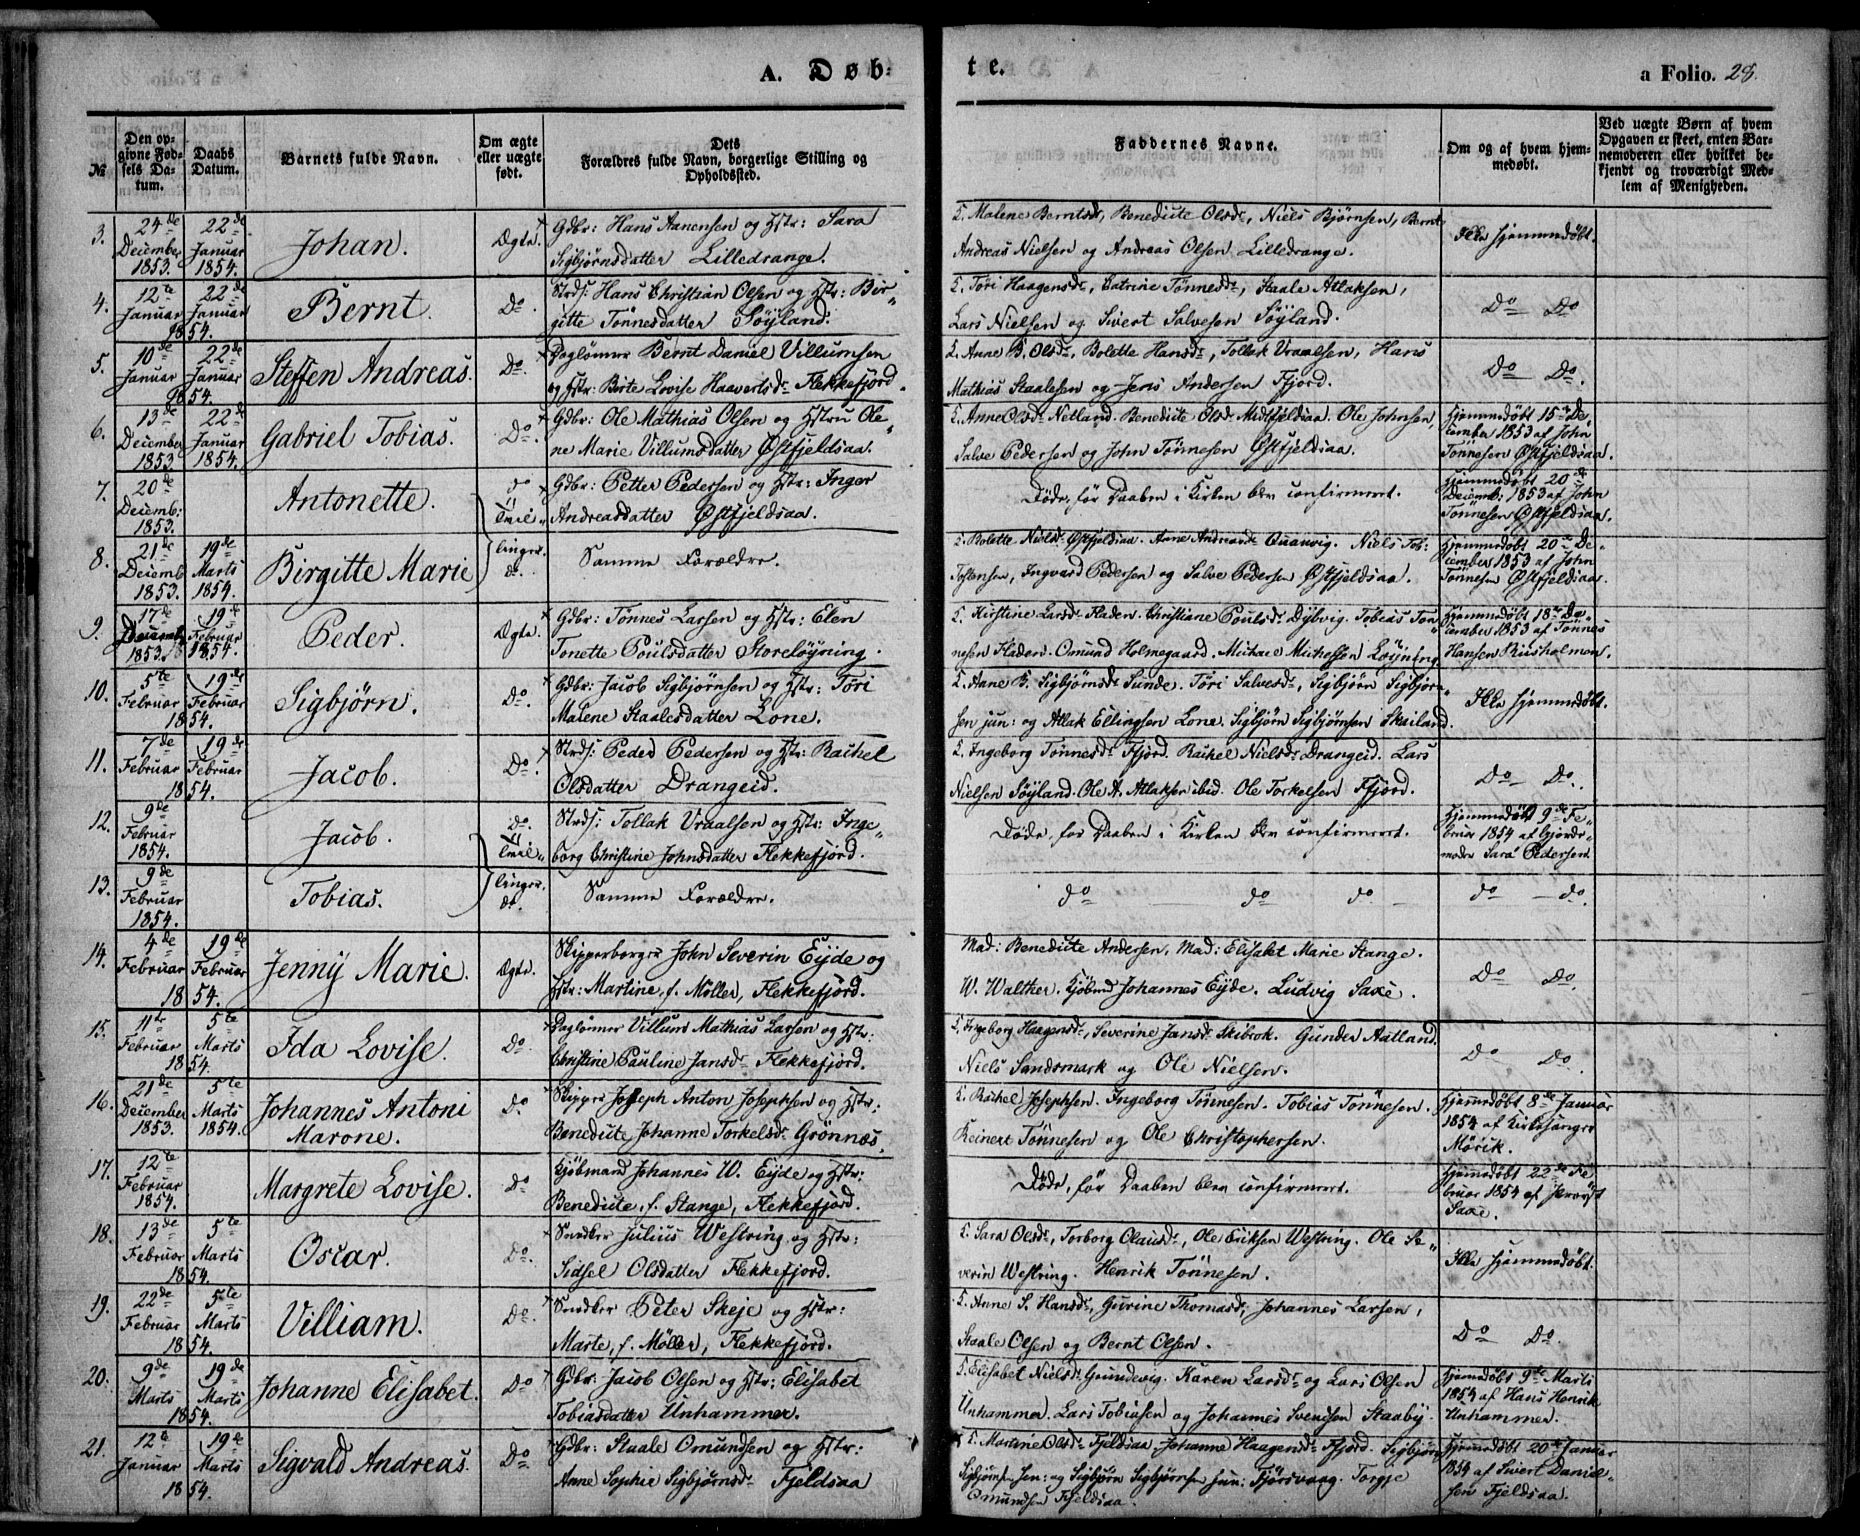 A. Døb-
te.
a Folio. 28.
№
Den op-
givne Fød-
sels Da-
tum.
Daabs
Datum.
Barnets fulde Navn.
Om ægte
eller uægte
født.
Dets
Forældres fulde Navn, borgerlige Stilling og
Opholdssted.
Faddernes Navne.
Om og af hvem hjem-
medøbt.
Ved uægte Børn af hvem
Opgaven er skeet, enten Bar-
nemoderen eller hvilket be-
kjendt og troværdigt Med-
lem af Menigheden.
3.
24de
December
1853.
22de
Januar
1854.
Johan.
Ægte.
Gdbr: Hans Aanensen og Hstr: Sara
Sigbjørnsdatter Lilledrange.
Malene Berntsdr, Benedicte Olsdr, Niels Bjørnsen, Bernt
Andreas Nielsen og Andreas Olsen Lilledrange.
Ikke hjemmedøbt.
4.
12te
Januar
22de
Januar
1854.
Bernt.
Do.
Strds: Hans Christian Olsen og Hstr: Bir-
gitte Tønnesdatter Søyland.
Tøri Haagensdr, Catrine Tønnesdr, Staale Atlaksen,
Lars Nielsen og Sivert Salvesen Søyland.
Do Do
5.
10de
Januar
22de
Januar
1854.
Steffen Andreas.
Do.
Daglønner Bernt Daniel Villumsen
og Hstr: Birte Lovise Haavertsdr Flekkefjord.
Anne B. Olsdr, Bolette Hansdr, Tollak Vraalsen, Hans
Mathias Staalesen og Jens Andersen Fjord.
Do Do.
6.
13de
December
1853
22de
Januar
1854.
Gabriel Tobias.
Do.
Gdbr: Ole Mathias Olsen og Hstru Ole-
ne Marie Villumsdatter Østfjeldsaa.
Anne Olsdr Netland. Benedicte Olsdr Midtfjeldsaa. Ole Johnsen,
Salve Pedersen og John Tønnesen Østfjeldsaa.
Hjemmedøbt 15de De-
cember 1853 af John
Tønnesen Østfjeldsaa.
7.
20de
Decemb:
1853.
Antonette.
do
Tvil-
Gdbr: Petter Pedersen og Hstr: Inger
Andreasdatter Østfjeldsaa.
Døde, før Daaben i Kirken blev confirmeret.
Hjemmedøbt 20de
Decemb: 1853 af John
Tønnesen Østfjeldsaa.
8.
21de
Decemb
1853.
19de
Marts
1854.
Birgitte Marie
linger.
do.
Samme Forældre.
Bolette Nielsdr Østfjeldsaa. Anne Andreasdr Qvanvig. Niels Tob:
Tostensen, Ingvard Pedersen og Salve Pedersen Østfjeldsaa.
Hjemmedøbt 20de De-
cember 1853 af John
Tønnesen Østfjeldsaa.
9.
17de
Decemb
1853.
19de
Februar
1854.
Peder.
Ægte.
Gdbr: Tønnes Larsen og Hstr: Elen
Tonette Poulsdatter Storeløyning.
Kirstine Larsdr Fladen. Christiane Poulsdr Dybvig. Tobias Tøn-
nesen Fladen. Omund Holmegaard. Michael Michelsen Løyning.
Hjemmedøbt 18de De-
cember 1853 af Tønnes
Hansen Kuusholmen.
10.
5te
Februar
19de
Februar
1854.
Sigbjørn.
Do.
Gdbr: Jacob Sigbjørnsen og Hstr: Tøri
Malene Staalesdatter Lone.
Anne B. Sigbjørnsdr Sunde. Tøri Salvesdr, Sigbjørn Sigbjørn-
sen jun: og Atlak Ellingsen Lone. Sigbjørn Sigbjørnsen Skeiland.
Ikke hjemmedøbt.
11.
7de
Februar
19de
Februar
1854.
Jacob.
Do.
Strds: Peder Pedersen og Hstr: Rachel
Olsdatter Drangeid.
Ingeborg Tønnesdr Fjord. Rachel Nielsdr Drangeid. Lars
Nielsen Søyland. Ole A. Atlaksen ibid. Ole Torkelsen Fjord.
Do Do.
12.
9de
Februar
1854.
Jacob.
do.
Tvil-
Strds: Tollak Vraalsen og Hstr: Inge-
borg Christine Johnsdatter Flekkefjord.
Døde, før Daaben i Kirken blev confirmeret.
Hjemmedøbt 9de Fe-
bruar 1854 af Gjorde-
moder Sara Pedersen
13.
9de
Februar
1854.
Tobias.
linger.
do.
Samme Forældre.
do do do
do do.
14.
4de
Februar
19de
Februar
1854.
Jenny Marie.
Ægte.
Skipperborger John Severin Eyde og
Hstr: Martine, f. Møller, Flekkefjord.
Mad: Benedicte Andersen, Mad: Elisabet Marie Stange.
W. Walther. Kjøbmd Johannes Eyde. Ludvig Saxe.
Do Do.
15.
11te
Februar
5te
Marts
1854.
Ida Lovise.
Do.
Daglønner Villum Mathias Larsen og Hstr:
Christine Pauline Jansdr Flekkefjord.
Ingeborg Haagensdr, Severine Jansdr Skibrok. Gunder Aatland.
Niels Sandsmark og Ole Nielsen.
Do Do.
16.
21de
December
1853.
5te
Marts
1854.
Johannes Antoni
Marone.
Do.
Skipper Joseph Anton Josephsen og Hstr:
Benedicte Johanne Torkelsdr Grønnes.
Rachel Josephsen. Ingeborg Tønnesen. Tobias Tønnesen.
Reinert Tønnesen og Ole Christophersen.
Hjemmedøbt 8de Januar
1854 af Kirkesanger
Mörik.
17.
12te
Februar
1854.
Margrete Lovise.
Do
Kjøbmand Johannes W. Eyde og Hstr:
Benedicte, f. Stange, Flekkefjord.
Døde, før Daaben blev confirmeret.
Hjemmedøbt 22de Fe-
bruar 1854 af
Saxe.
18.
13de
Februar
5te
Marts
1854.
Oscar.
Do.
Snedker Julius Westring og Hstr:
Sidsel Olsdatter Flekkefjord.
Sara Olsdr, Torborg Olausdr, Ole Eriksen Westring. Ole Se-
verin Westring. Henrik Tønnesen.
Ikke hjemmedøbt.
19.
22de
Februar
5te
Marts
1854.
Villiam.
Do.
Snedker Peter Skeje og Hstr:
Marte, f. Møller, Flekkefjord.
Anne S. Hansdr, Gurine Thomasdr, Johannes Larsen,
Staale Olsen og Bernt Olsen.
Do Do.
20.
9de
Marts
19de
Marts
1854.
Johanne Elisabet.
Do
Gdbr. Jacob Olsen og Hstr: Elisabet
Tobiasdatter Unhammer.
Elisabet Nielsdr Grundevig. Karen Larsdr og Lars Olsen
Unhammer. Lars Tobiasen og Johannes Svendsen Staaby.
Hjemmedøbt 9de Marts
1854 af Hans Henrik
Unhammer.
21.
12te
Januar
19de
Marts
1854.
Sigvald Andreas.
Do
Gdbr: Staale Omundsen og Hstr:
Anne Sophie Sigbjørnsdr Fjeldsaa
Martine Olsdr Fjeldsaa. Johanne Haagensdr Fjord. Sigbjørn
Sigbjørnsen sen: og Sigbjørn Sigbjørnsen jun: Fjørsvaag. Torgje
Omundsen Fjeldsaa.
Hjemmedøbt 20de Januar
1854 af Sivert Daniel-
sen Fjeldsaa.